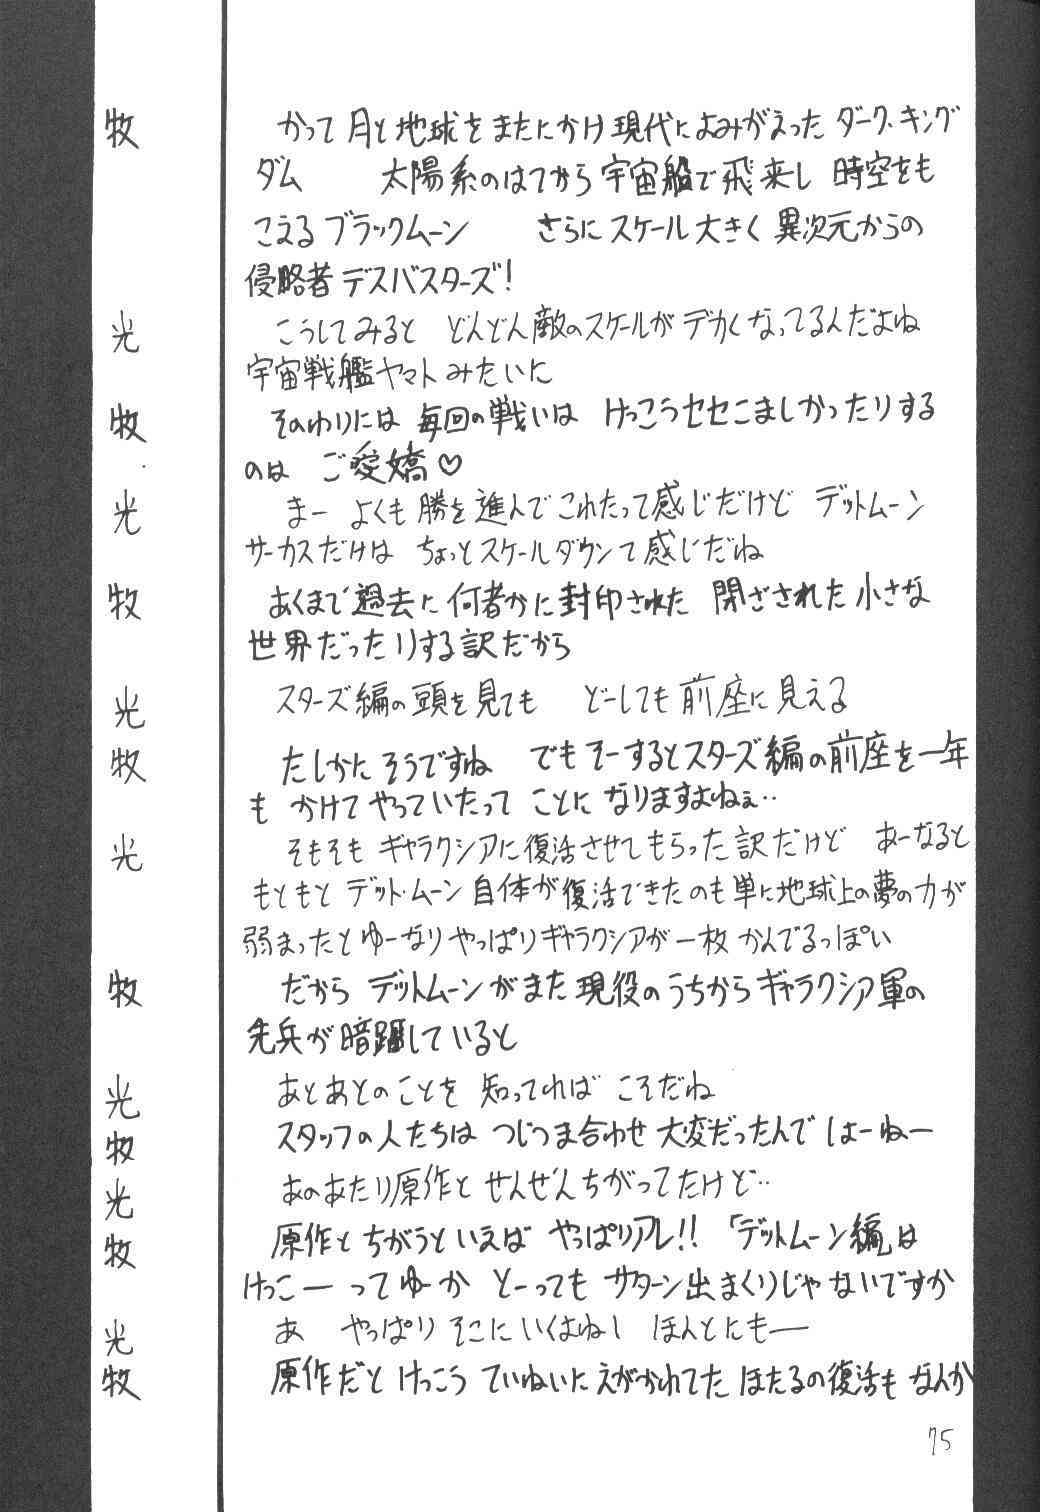 牧　かつて月と地球をまたにかけ現代によみがえったダーク、キング
ダム　　太陽系のはてから宇宙船で飛来し　時空をも
こえるブラックムーン　　さらにスケール大きく異次元からの
侵略者デスバスターズ!
光　こうしてみると　どんどん敵のスケールがデカくなってるんだよね
宇宙戦艦ヤマトみたいに
牧　そのわりには毎回の戦いは　けっこうセセこましかったりする
のは　ご愛嬌♡
光　まー　よくも勝を進んでこれたって感じだけど　デットムーン
サーカスだけは　ちょっとスケールダウンて感じだね
牧　あくまで過去に何者かに封印された　閉ざされた小さな
世界だったりする訳だから
光　スターズ編の頭を見ても　どーしても前座に見える
牧　たしかにそうですね　でもそーするとスターズ編の前座を一年
も　かけてやっていたって　ことに　なりますよねぇ‥
光　そもそも　ギャラクシアに復活させてもらった訳だけど　あーなると
もともと　デット・ムーン自体が復活できたのも単に地球上の夢の力が
弱まったとゆーなりやっぱりギャラクシアが一枚かんでるっぽい
牧　だから　デットムーンがまた現役のうちからギャラクシア軍の
先兵が暗躍していると
光　あとあとのことを　知ってればこそだね
牧　スタッフの人たちは　つじつま合わせ大変だったんでしょーねー
光　あのあたり原作とぜんぜんちがってたけど‥
牧　原作とちがうといえば　やっぱりアレ!!「デットムーン編」は
けっこーってゆーか　とーってもサターン出まくりじゃないですか
光　あ　やっぱり　そこにいくはねし　ほんとにもー
牧　原作だと　けっこう　ていねいにえがかれてた　ほたるの復活も　なんか
75